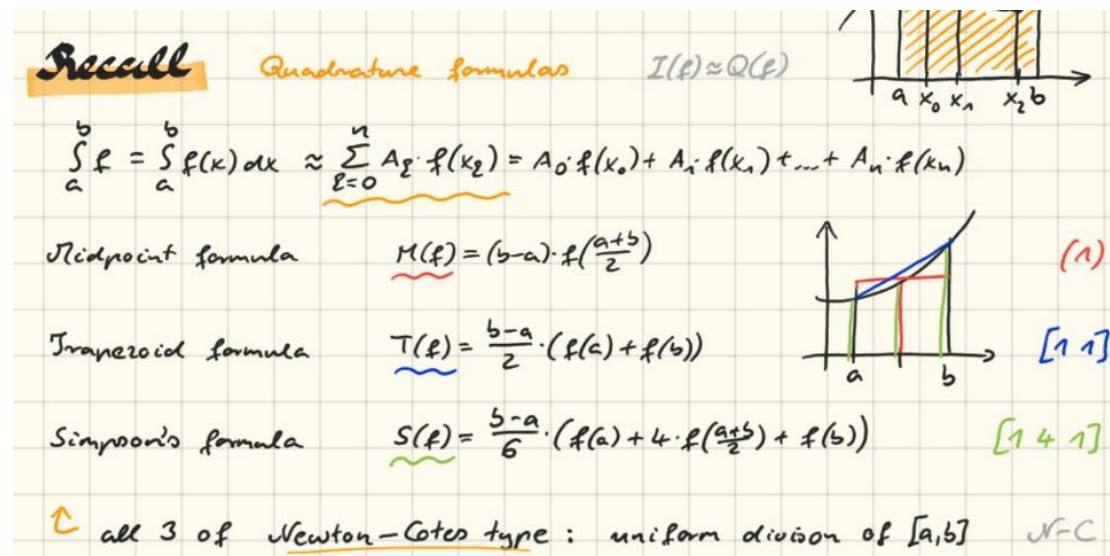 Recall Quadrature formulas I(f)≈Q(f)
a x₀ x₁ x₂ b
∫ₐᵇ f = ∫ₐᵇ f(x) dx ≈ ∑ₖ₌₀ⁿ Aₖ·f(xₖ) = A₀·f(x₀) + A₁·f(x₁) + ... + Aₙ·f(xₙ)
Midpoint formula M(f) = (b-a)·f((a+b)/2) (1)
Trapezoid formula T(f) = (b-a)/2·(f(a)+f(b)) [1 1]
a b
Simpson's formula S(f) = (b-a)/6·(f(a)+4·f((a+b)/2)+f(b)) [1 4 1]
↑ all 3 of Newton-Cotes type: uniform divison of [a,b] N-C